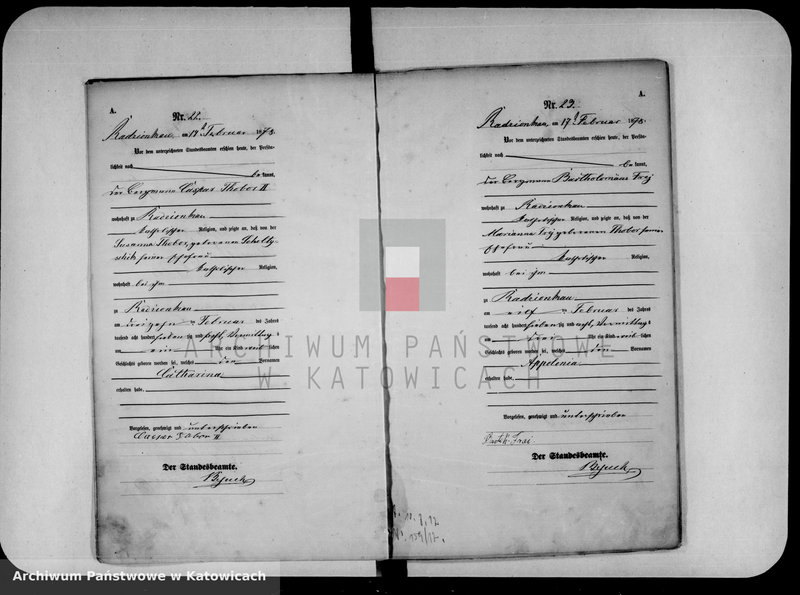 A.
Nr. 22.
Radzionkau, am 17ᵗ Februar 1878.
Vor dem unterzeichneten Standesbeamten erschien heute, der Persön-
lichkeit nach
be kannt,
der Bergmann Caspar Thobor II
wohnhaft zu Radzionkau
katholischer Religion, und zeigte an, daß von der
Susanna Thobor, geborenen
seiner Ehefrau
katholischer Religion,
wohnhaft bei ihm
zu Radzionkau
am dreizehn Februar des Jahres
tausend acht hundert siebenzig und acht, Vormittags
um ein Uhr ein Kind weib lichen
Geschlechts geboren worden sei, welches den Vornamen
Catharina
erhalten habe.
Vorgelesen, genehmigt und unterschrieben
Caspar Tobor II.
Der Standesbeamte.
A.
Nr. 23.
Radzionkau, am 17ᵗ Februar 1878.
Vor dem unterzeichneten Standesbeamten erschien heute, der Persön-
lichkeit nach
be kannt,
der Bergmann Bartholomäus Frej
wohnhaft zu Radzionkau
katholischer Religion, und zeigte an, daß von der
Marianna Frej geborenen Thobor seiner
Ehefrau
katholischer Religion,
wohnhaft bei ihm
zu Radzionkau
am elf Februar des Jahres
tausend acht hundert siebenzig und acht, Vormittags
um drei Uhr ein Kind weib lichen
Geschlechts geboren worden sei, welches den Vornamen
Appolonia
erhalten habe.
Vorgelesen, genehmigt und unterschrieben
Frei
Der Standesbeamte.
ARCHIWUM PAŃSTWOWE
W KATOWICACH
Archiwum Państwowe w Katowicach